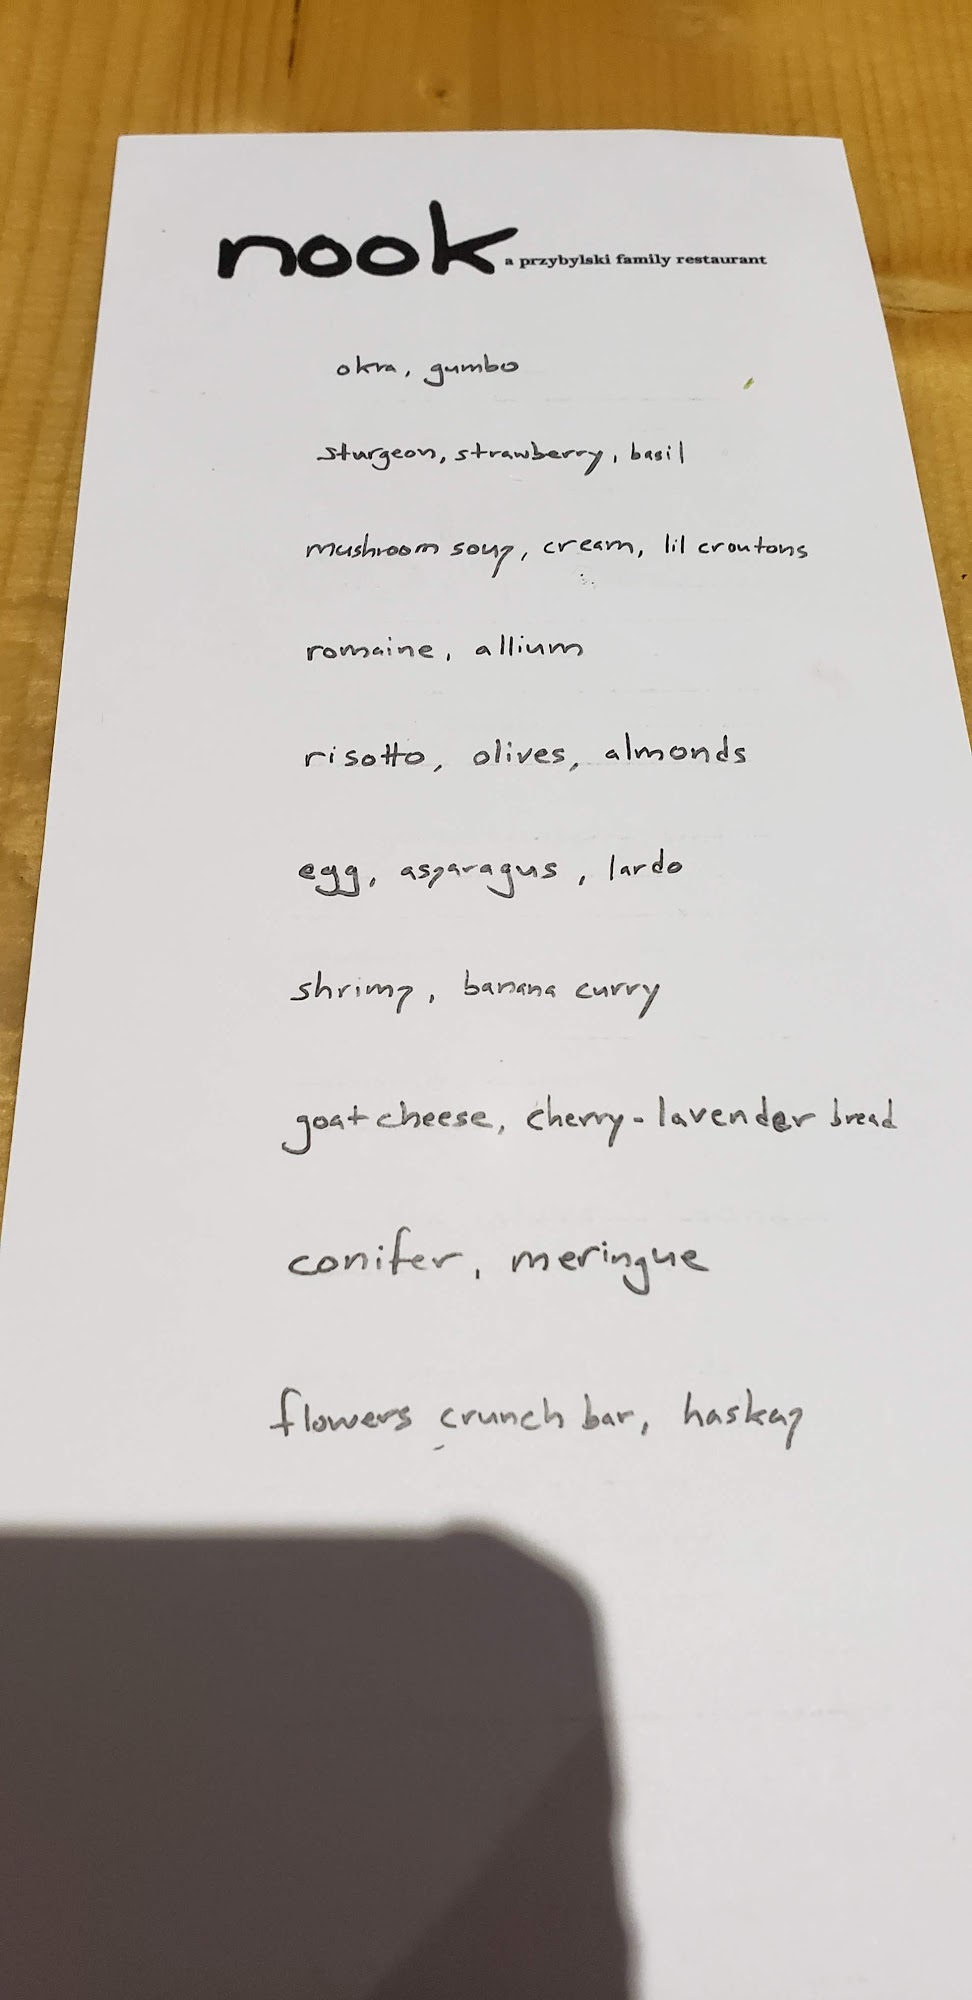 nook a przybylski family restaurant
okra, gumbo
sturgeon, strawberry, basil
mushroom soup, cream, lil croutons
romaine, allium
risotto, olives, almonds
egg, asparagus, lardo
shrimp, banana curry
goat cheese, cherry-lavender bread
conifer, meringue
flowers crunch bar, haskap